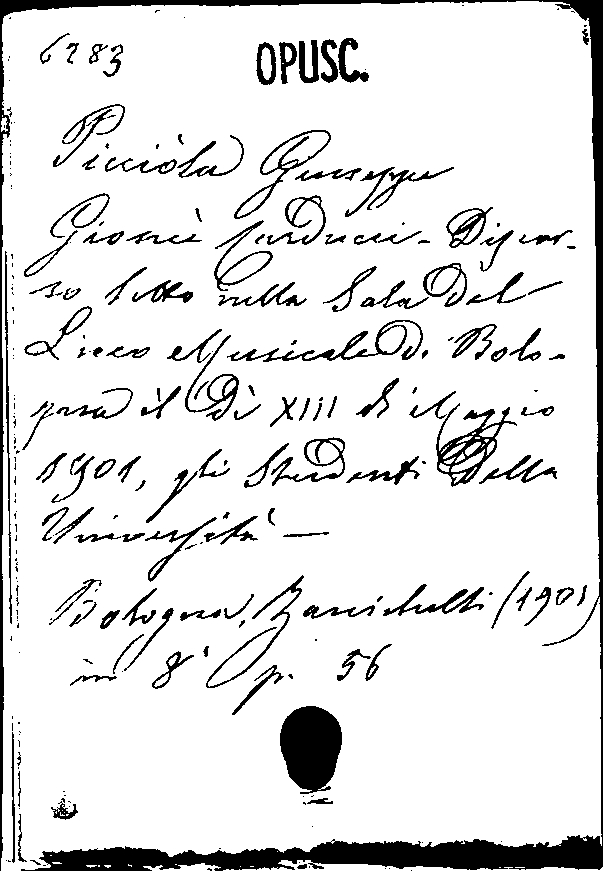 6283
OPUSC.
Picciòla Giuseppe
Giosuè Carducci - Discor-
so letto nella Sala del
Liceo Musicale di Bolo-
gna il Dì XIII di Maggio
1901, gli Studenti Della
Università —
Bologna, Zanichelli (1901)
in 8° p. 56